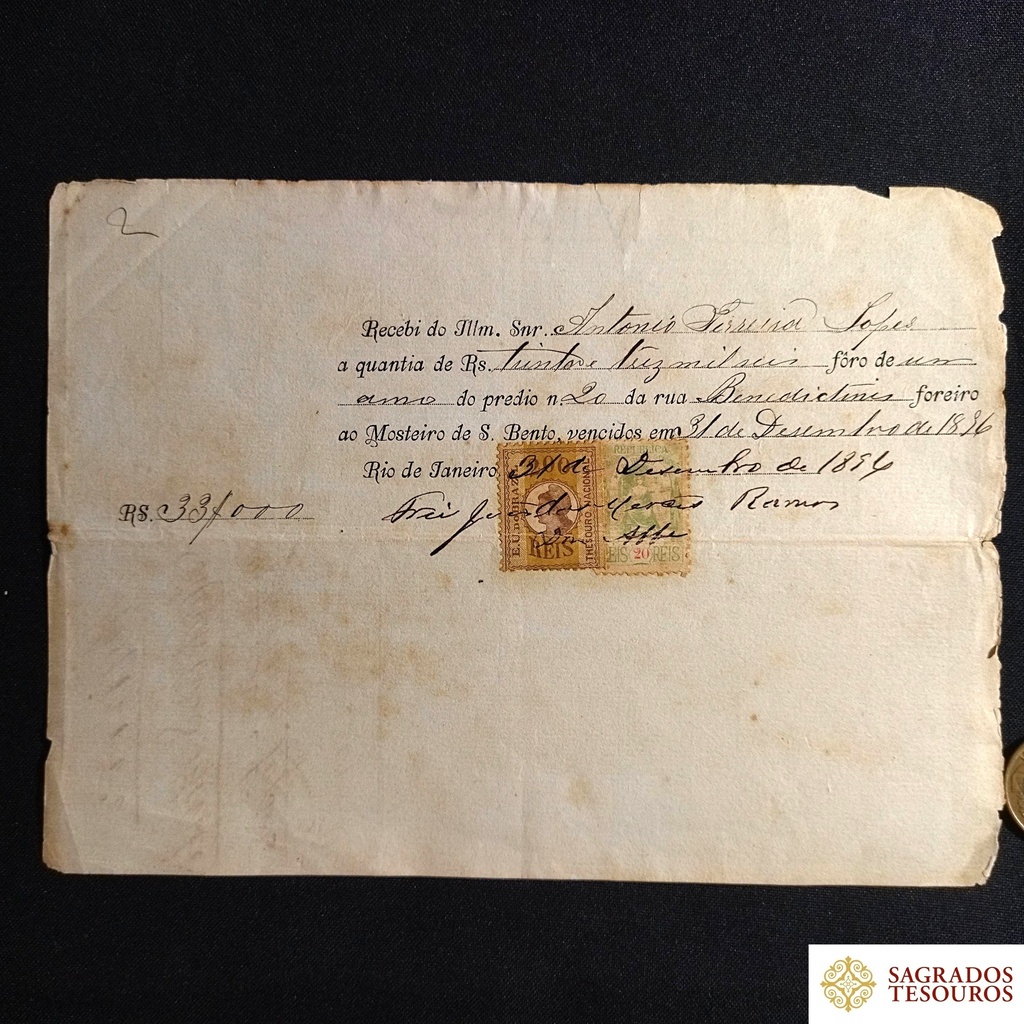 2
Recebi do Illm. Snr. Antonio Ferreira Lopes
a quantia de Rs. trinta e trez mil reis fôro de um
anno do predio n. 20 da rua Benedictinis foreiro
ao Mosteiro de S. Bento, vencidos em 31 de Desembro de 1896
Rio de Janeiro 31 de Desembro de 1896
RS. 33$000 Frei João das Mercês Ramos
Dom Abbe
REPUBLICA
E.U. DO BRAZIL
THESOURO NACIONAL
REIS
REIS 20 REIS
SAGRADOS
TESOUROS